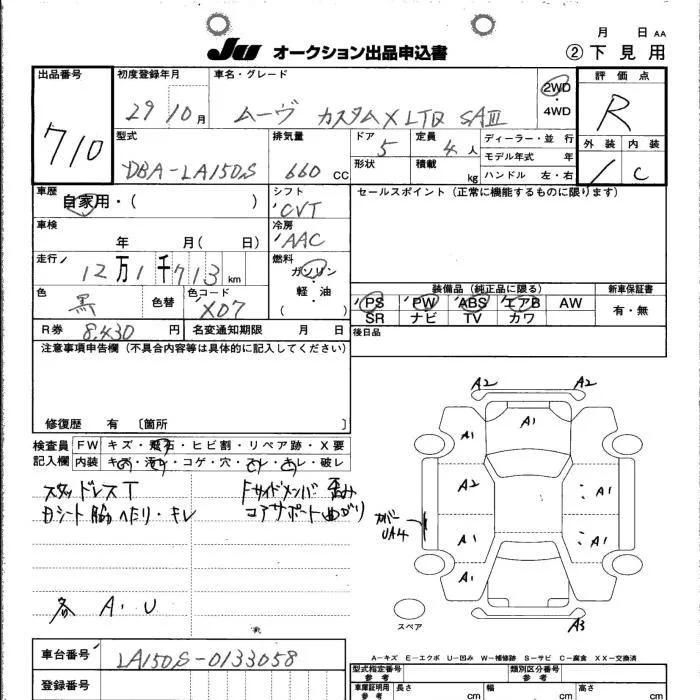 月 日 AA
JU オークション出品申込書 ② 下見用
出品番号 初度登録年月 車名・グレード 評価点
710 29 10月 ムーヴ カスタムX LTD SAⅢ 2WD・4WD R
型式 排気量 ドア 定員 ディーラー・並行 外装 内装
DBA-LA150S 660 CC 5 4人 モデル年式 年 / C
形状 積載 kg ハンドル 左・右
車歴 シフト セールスポイント(正常に機能するものに限ります)
自家用・( ) CVT
車検 冷房
年 月( 日) AAC
走行 燃料
12万1千713km ガソリン・軽・油 ( )
色 色替 色コード 装備品(純正品に限る) 新車保証書
黒 X07 PS PW ABS エアB AW 有・無
SR ナビ TV カワ
R券 8,430円 名変通知期限 月 日 後日品
注意事項申告欄(不具合内容等は具体的に記入してください)
修復歴 有 〔箇所 〕
検査員 FW キズ・飛石・ヒビ割・リペア跡・X要
記入欄 内装 キズ・汚れ・コゲ・穴・スレ・キレ・破レ
スタッドレスT Fサイドメンバ 歪み
Dシート脇へたり・キレ コアサポート曲がり
各 A、U
A2 A2
A1 A1 A1
A2 A1
カバー UA4 A1 A1
A1
スペア A3
A-キズ E-エクボ U-凹み W-補修跡 S-サビ C-腐食 XX-交換済
車台番号 LA150S-0133058
登録番号
型式指定番号 参考 類別区分番号 参考
車庫証明用 参考 長さ cm 幅 cm 高さ cm